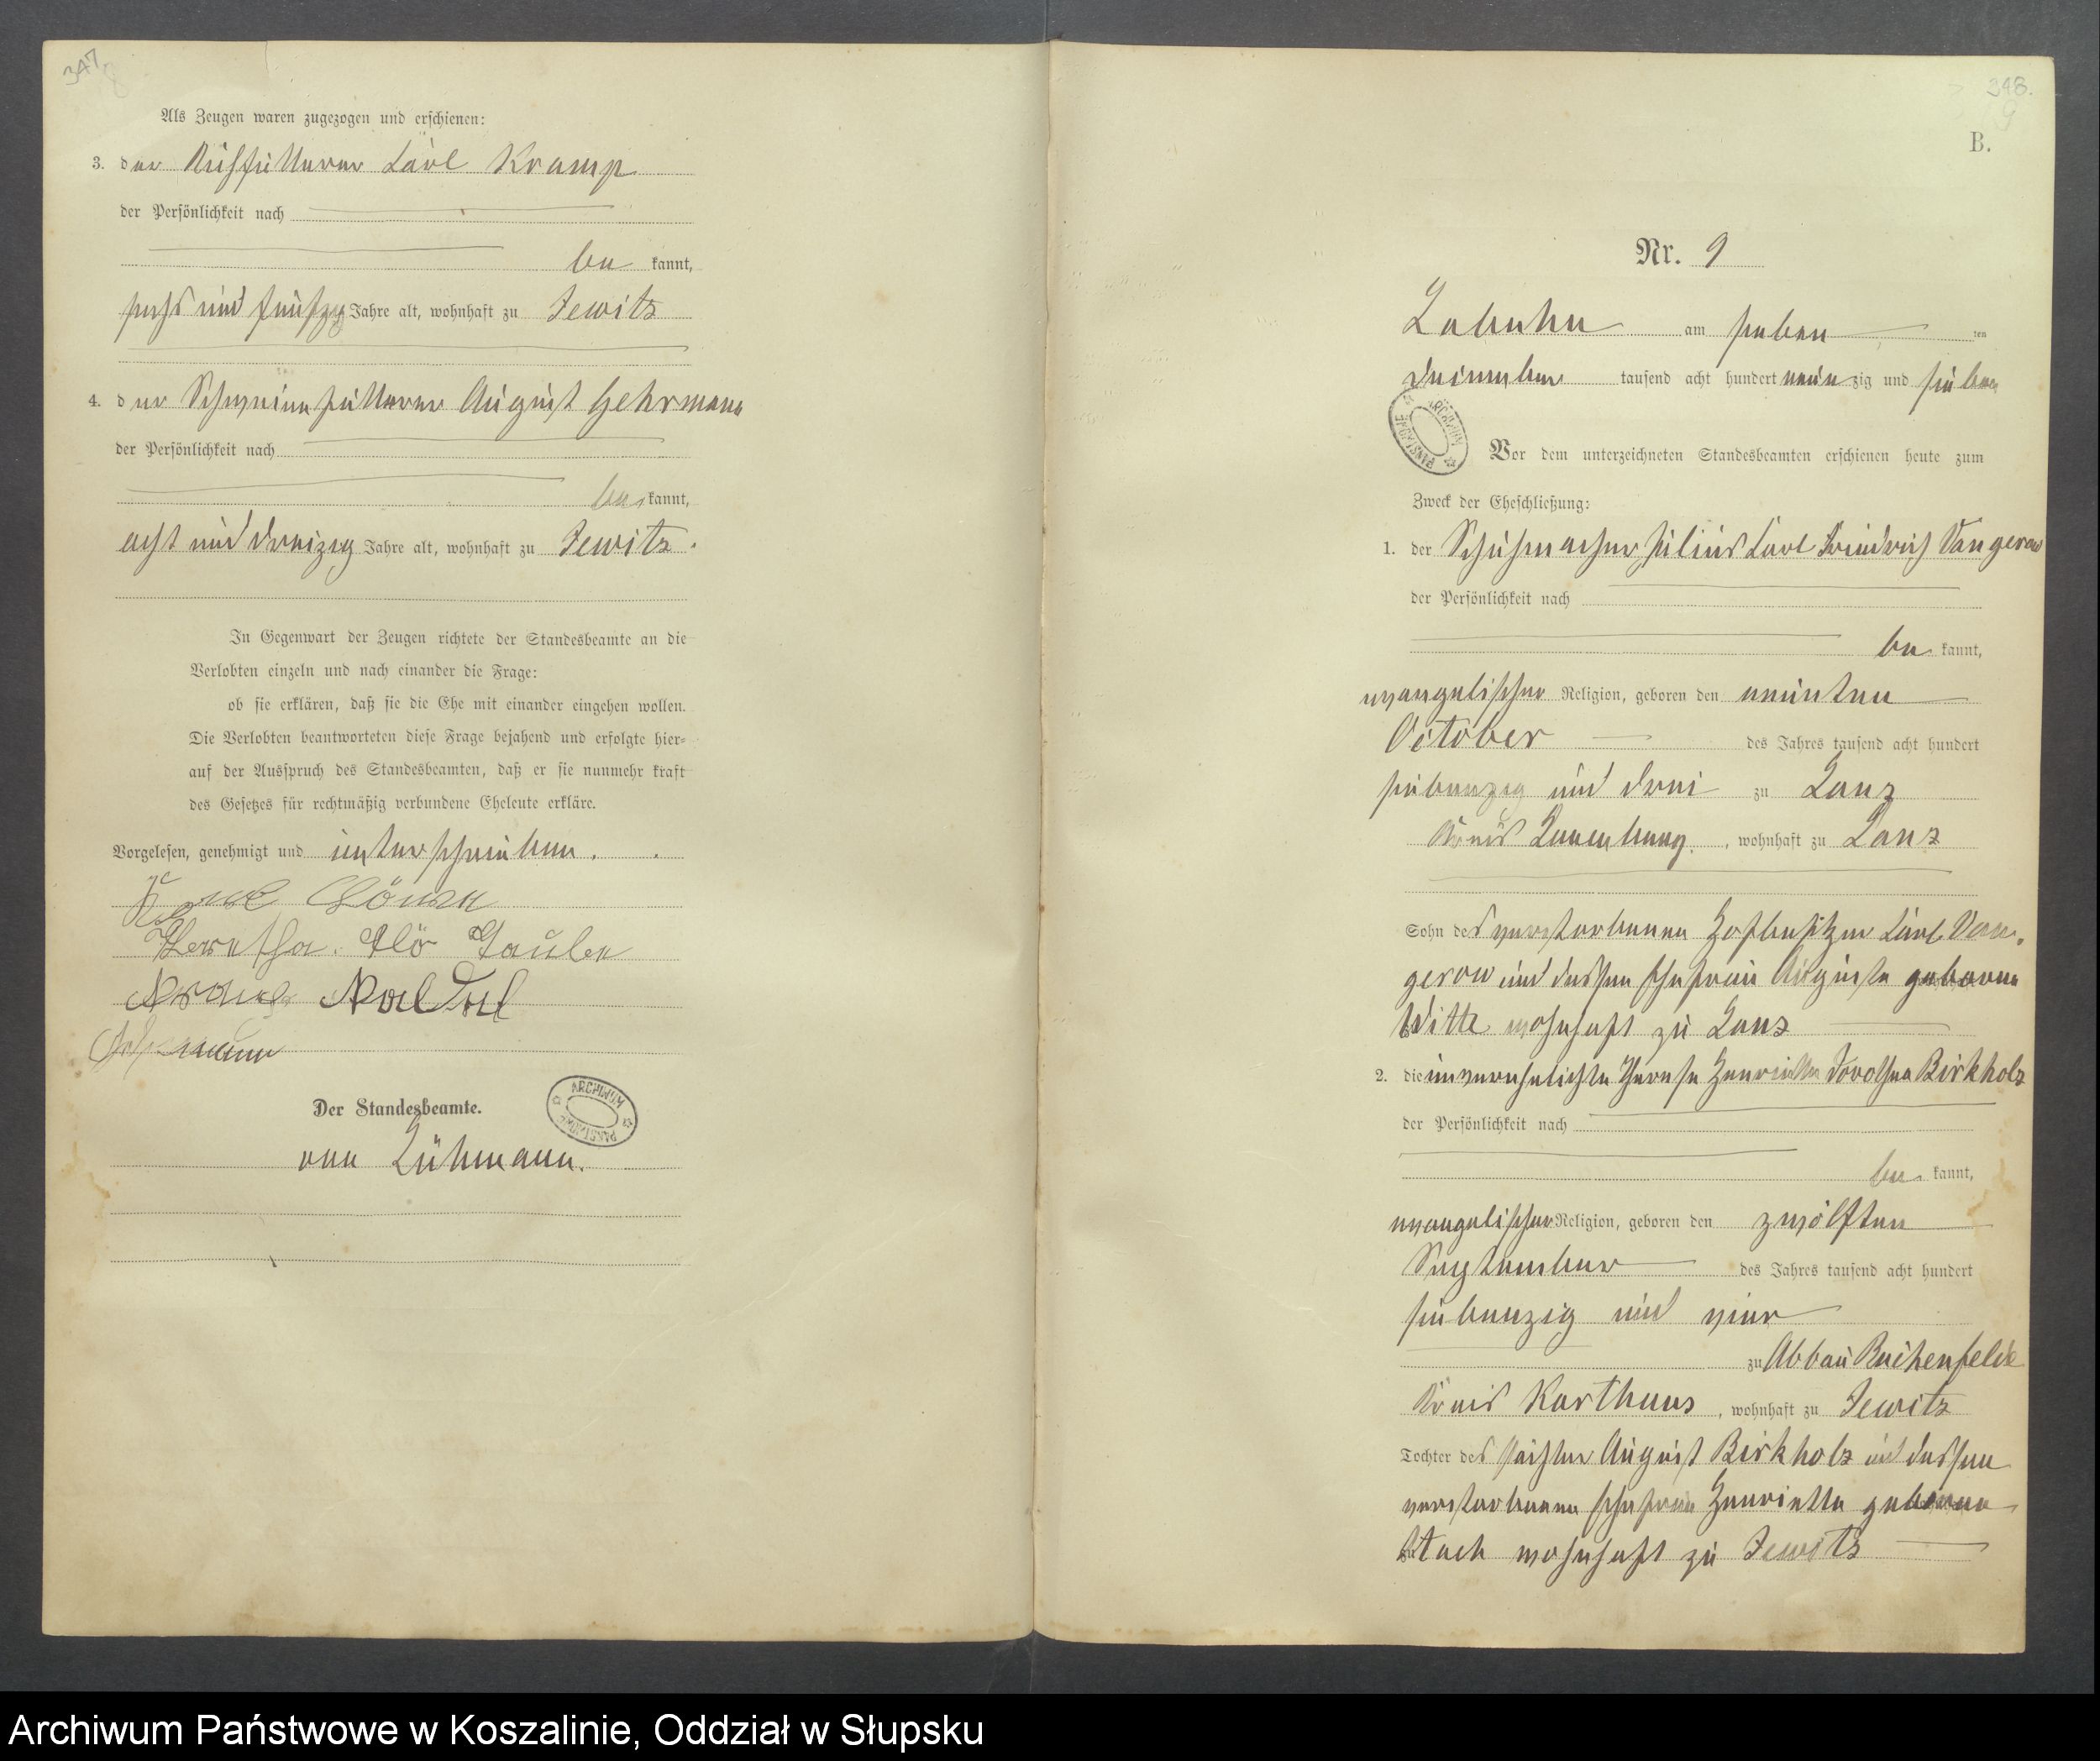 347.
Als Zeugen waren zugezogen und erschienen:
3. der Kuhfütterer Carl Kramp
der Persönlichkeit nach
be kannt,
sechs und fünfzig Jahre alt, wohnhaft zu Jewitz
4. der Schweinefütterer August Gehrmann
der Persönlichkeit nach
be kannt,
acht und dreizig Jahre alt, wohnhaft zu Jewitz.
In Gegenwart der Zeugen richtete der Standesbeamte an die
Verlobten einzeln und nach einander die Frage:
ob sie erklären, daß sie die Ehe mit einander eingehen wollen.
Die Verlobten beantworteten diese Frage bejahend und erfolgte hier-
auf der Ausspruch des Standesbeamten, daß er sie nunmehr kraft
des Gesetzes für rechtmäßig verbundene Eheleute erkläre.
Vorgelesen, genehmigt und unterschrieben.
Der Standesbeamte.
ARCHIWUM PAŃSTWOWE
von Lühmann.
348.
9
B.
Nr. 9
Labuhn am sieben ten
Dezember tausend acht hundert neunzig und sieben
ARCHIWUM PAŃSTWOWE
Vor dem unterzeichneten Standesbeamten erschienen heute zum
Zweck der Eheschließung:
1. der Schuhmacher Julius Carl Friedrich Vangerow
der Persönlichkeit nach
be kannt,
evangelischer Religion, geboren den neunten
October des Jahres tausend acht hundert
siebenzig und drei zu Lanz
Kreis Lauenburg, wohnhaft zu Lanz
Sohn des verstorbenen Hofbesitzer Carl Van-
gerow und dessen Ehefrau Auguste geborne
Witte wohnhaft zu Lanz
2. die unverehelichte Therese Henriette Dorothea Birkholz
der Persönlichkeit nach
be kannt,
evangelischer Religion, geboren den zwölften
September des Jahres tausend acht hundert
siebenzig und vier
zu Abbau Buchenfelde
Kreis Karthaus, wohnhaft zu Jewitz
Tochter des August Birkholz und dessen
verstorbenen Ehefrau Henriette geborene
wohnhaft zu Jewitz
Archiwum Państwowe w Koszalinie, Oddział w Słupsku